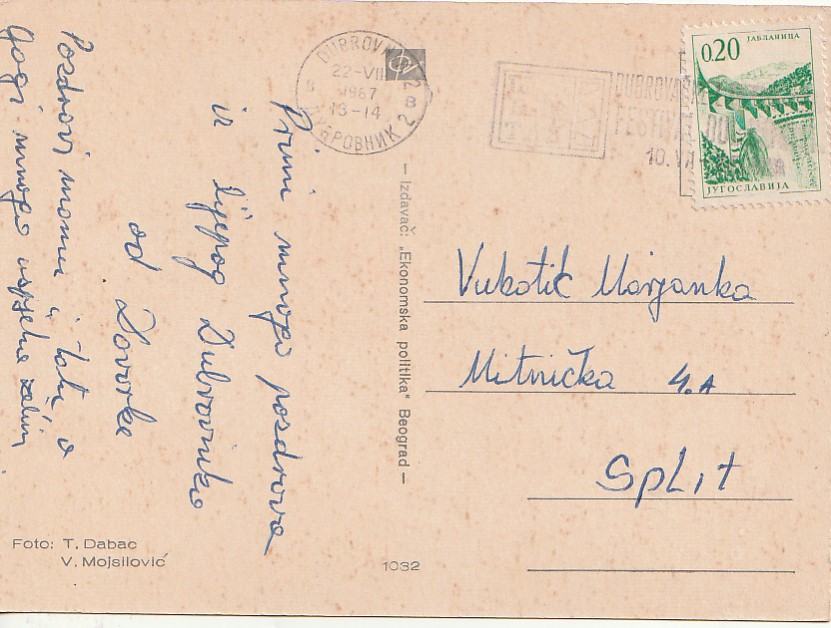 Primi mnogo pozdrova
iz lijepog Dubrovnika
od Lovorke
Pozdravi mamu i tatu, a
Gogi mnogo uspjeha želim
Foto: T. Dabac
V. Mojsilović
1032
— Izdavač: „Ekonomska politika" Beograd —
DUBROVNIK 2
22-VII
1967
13-14
ДУБРОВНИК 2
8 8
DUBROVAČKE
FESTIVAL
10.VII
0.20
ЈАБЛАНИЦА
ЈУГОСЛАВИЈА
Vukotić Marjanka
Mitnička 4.A
Split